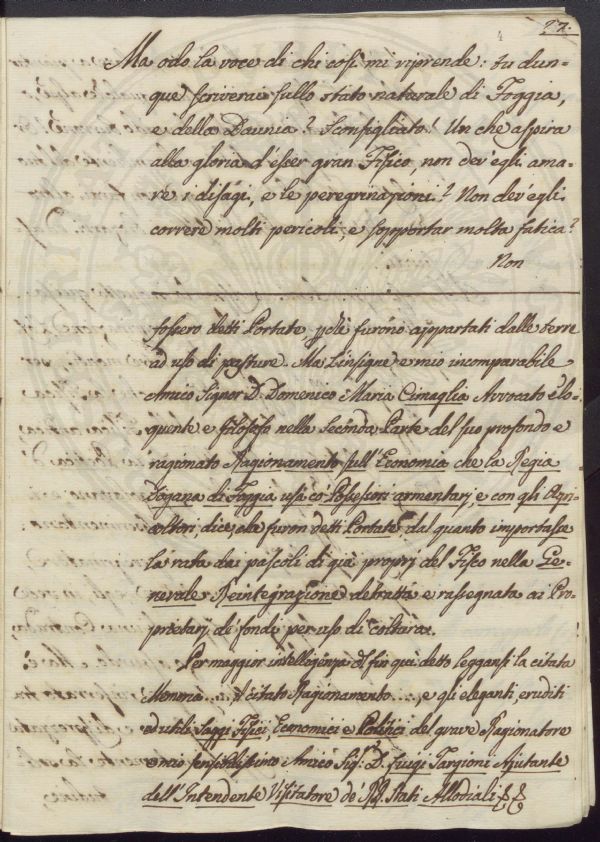 27.
Ma odo la voce di chi così mi riprende: tu dun-
que scriverai sullo stato naturale di Foggia,
e della Daunia? Sconsigliato! Un che aspira
alla gloria d'esser gran Fisico, non dev'egli ama-
re i disagi, e le peregrinazioni? Non dev'egli
correre molti pericoli, e sopportar molta fatica?
Non
fossero detti Portate, ppchè furono appartati dalle terre
ad uso di pasture. Ma l'insigne e mio incomparabile
Amico Signor D. Domenico Maria Cimaglia Avvocato elo-
quente e filosofo nella Seconda Parte del suo profondo e
ragionato Ragionamento sull'Economia che la Regia
Dogana di Foggia usa co' Possessori armentarj, e con gli Agri-
coltori, dice, che furon detti Portate, dal quanto importassa
la rata dai pascoli di già proprj del Fisco nella Ge-
nerale Reintegrazione detratta e rassegnata ai Pro-
prietarj de' fondi per uso di coltura.
Per maggior intelligenza di fin quì detto leggansi la citata
Memoria...., il citato Ragionamento....., e gli eleganti, eruditi
ed utili Saggi Fisici, Economici e Politici del grave Ragionatore
e mio sensatissimo Amico Sig.r D. Luigi Targioni Ajutante
dell'Intendente Visitatore de' RR. Stati Allodiali